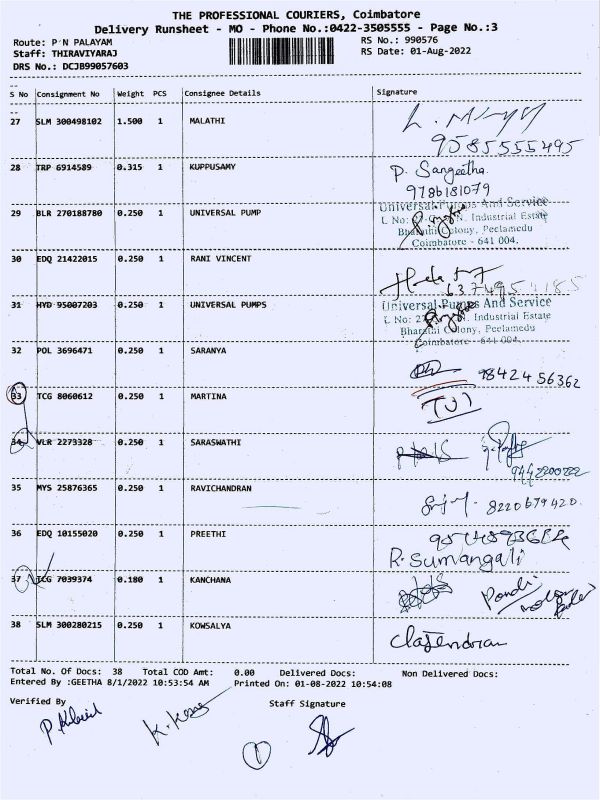 THE PROFESSIONAL COURIERS, Coimbatore
Delivery Runsheet - MO - Phone No.:0422-3505555 - Page No.:3
Route: P N PALAYAM
Staff: THIRAVIYARAJ
DRS No.: DCJB99057603
RS No.: 990576
RS Date: 01-Aug-2022
S No Consignment No Weight PCS Consignee Details Signature
27 SLM 300498102 1.500 1 MALATHI
9585555495
28 TRP 6914589 0.315 1 KUPPUSAMY P. Sangeetha
9786181079
29 BLR 270188780 0.250 1 UNIVERSAL PUMP Universal Pumps And Service
Industrial Estate
Bharathi Colony, Peelamedu
Coimbatore - 641 004.
30 EDQ 21422015 0.250 1 RANI VINCENT
31 HYD 95007203 0.250 1 UNIVERSAL PUMPS Universal Pumps And Service
Industrial Estate
Bharathi Colony, Peelamedu
Coimbatore - 641 004.
32 POL 3696471 0.250 1 SARANYA 9842456362
33 TCG 8060612 0.250 1 MARTINA
34 VLR 2273328 0.250 1 SARASWATHI
35 MYS 25876365 0.250 1 RAVICHANDRAN 8220679420.
36 EDQ 10155020 0.250 1 PREETHI
R. Sumangali
37 TCG 7039374 0.180 1 KANCHANA
38 SLM 300280215 0.250 1 KOWSALYA
Total No. Of Docs: 38 Total COD Amt: 0.00 Delivered Docs: Non Delivered Docs:
Entered By :GEETHA 8/1/2022 10:53:54 AM Printed On: 01-08-2022 10:54:08
Verified By Staff Signature
1